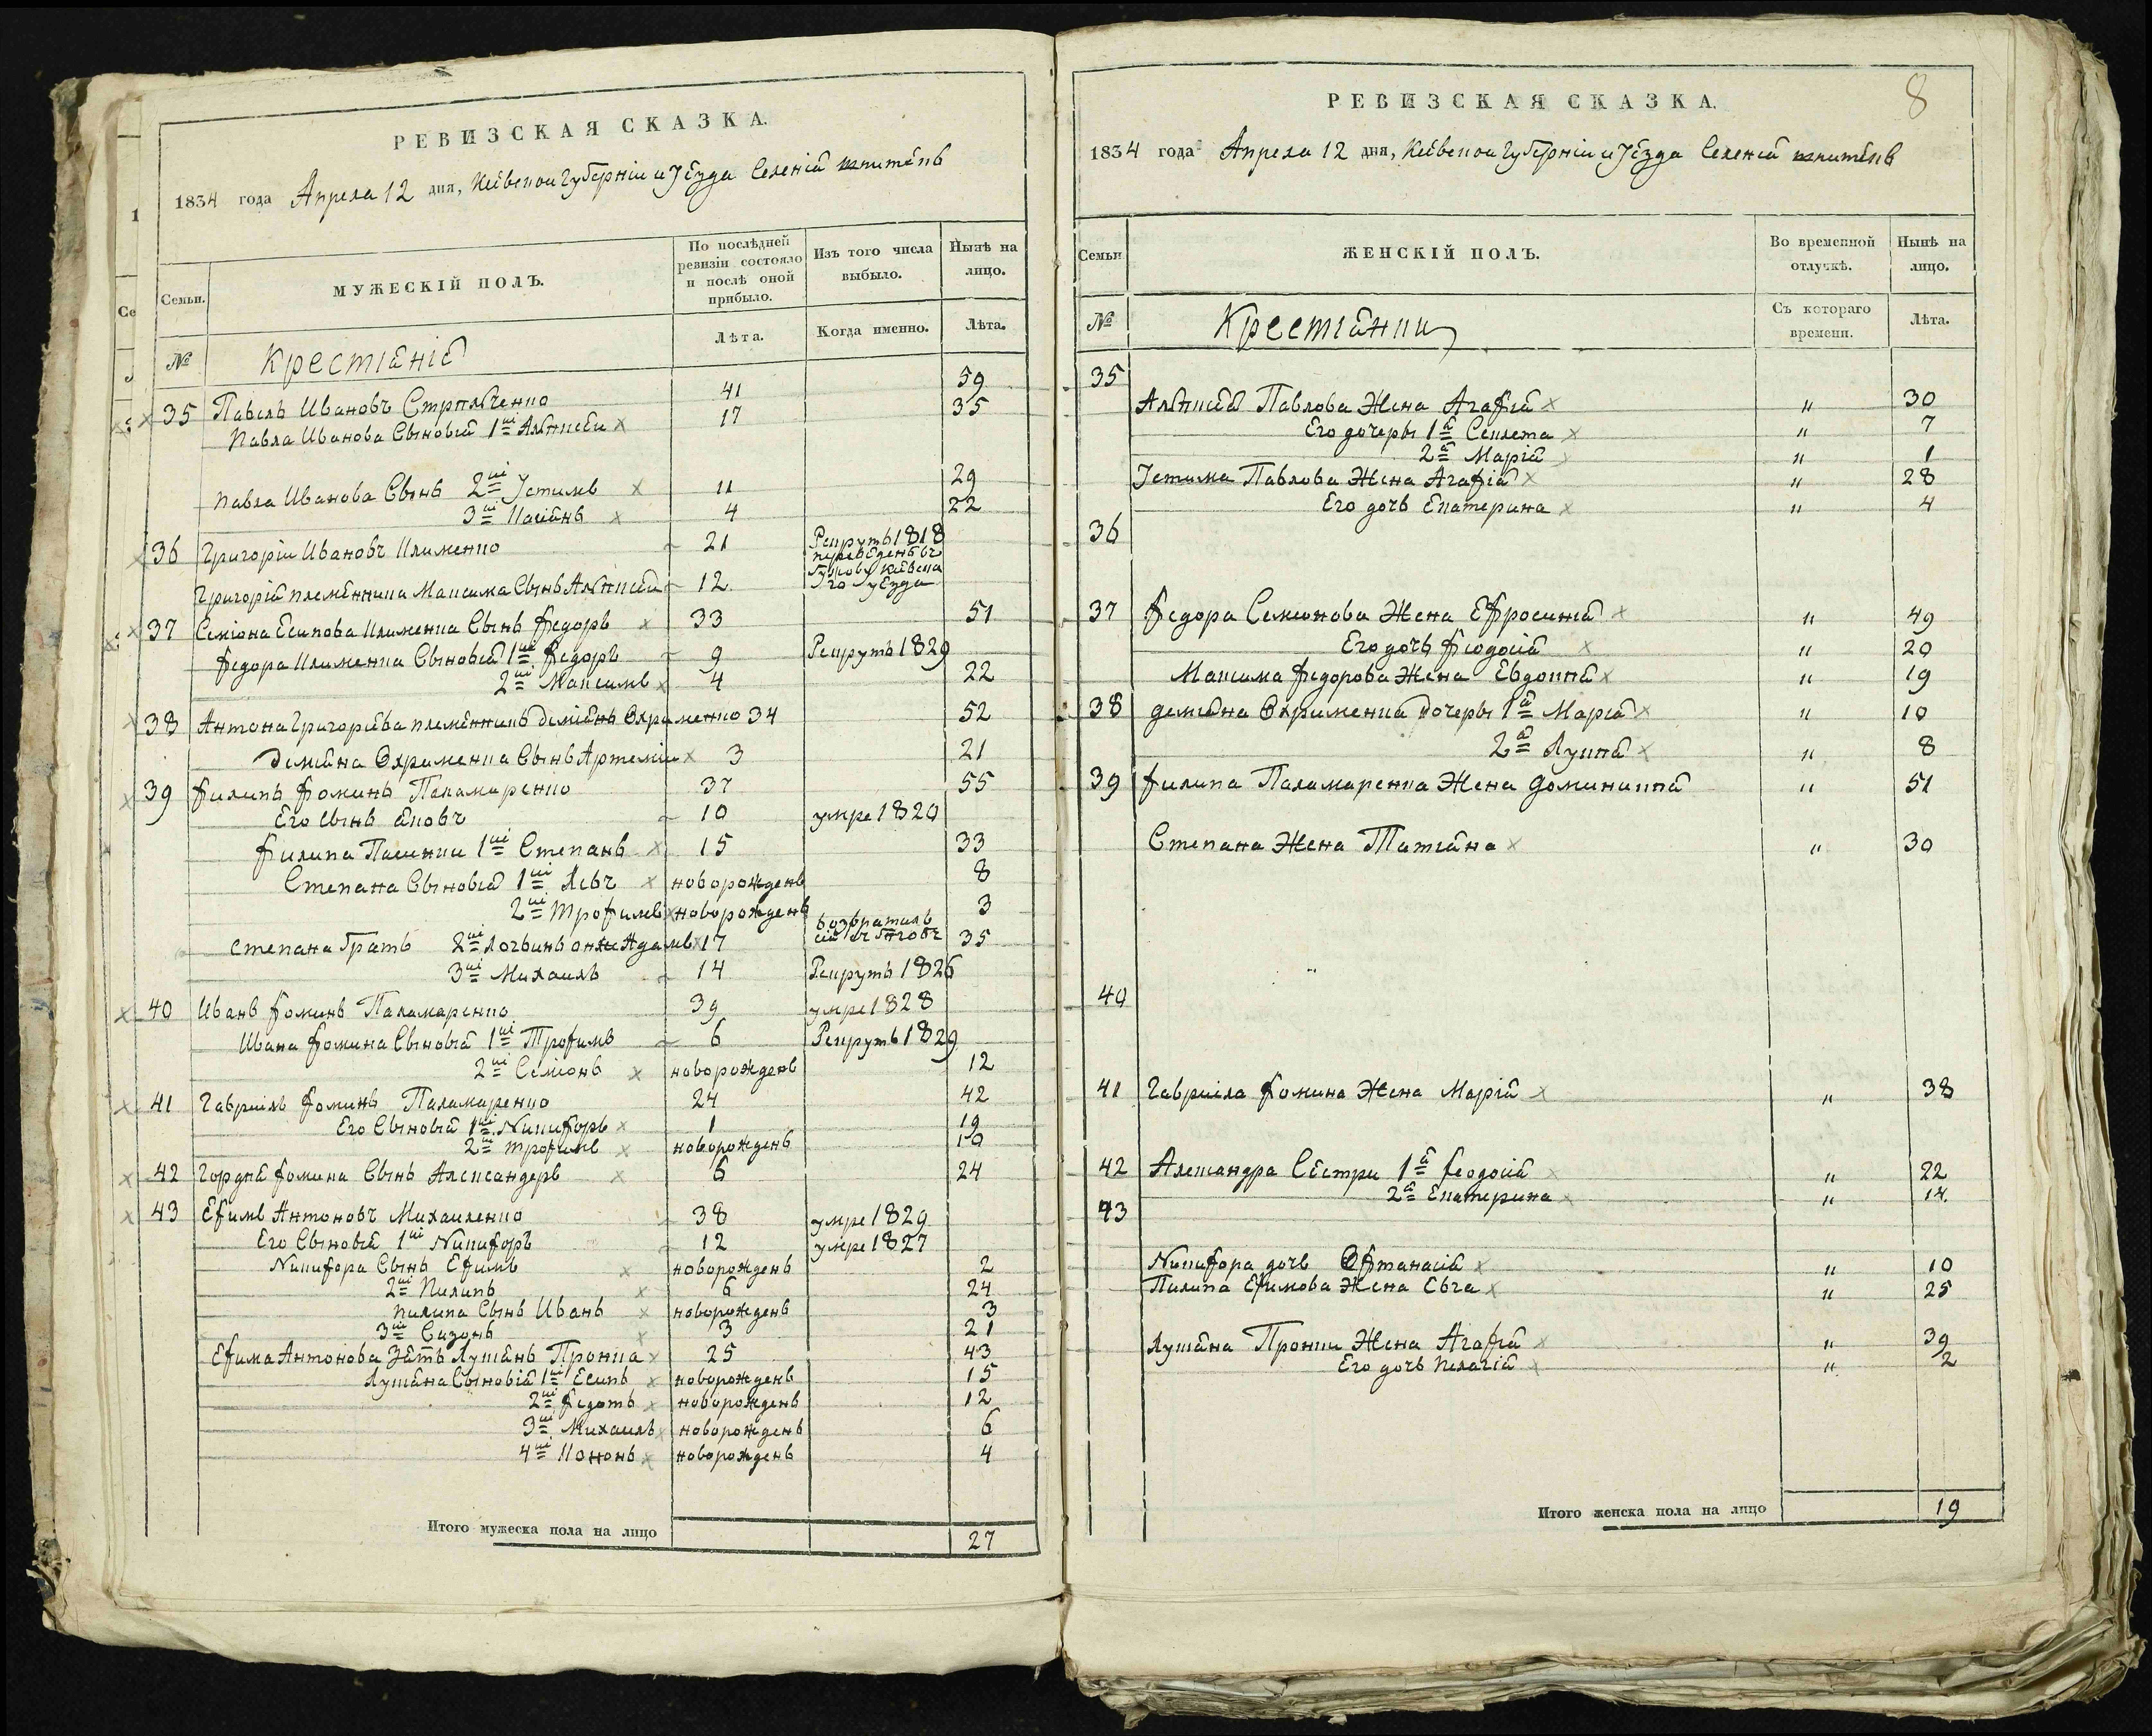 РЕВИЗСКАЯ СКАЗКА.
1834 года Апреля 12 дня, Кіевскои Губерніи и Уезда Селенія
Семьи.
МУЖЕСКІЙ ПОЛЪ.
По послѣдней ревизіи состояло и послѣ оной прибыло.
Изъ того числа выбыло.
Нынѣ на лицо.
№
Крестіанія
Лѣта.
Когда именно.
Лѣта.
35 Павелъ Ивановъ 41 59
Павла Иванова Сыновья 1й Алѣксей 17 35
Павла Иванова Сынъ 2й Устимъ 11 29
3й Касіянъ 4 22
36 Григоріи Ивановъ Клименко 21 Рекрутъ 1818
Григорія племѣнника Максима Сынъ Алѣксей 12 переведенъ въ Киевска го уезда
37 Семіона Есипова Клименка Сынъ Федоръ 33 51
Федора Клименка Сыновья 1й Федоръ 9 Рекрутъ 1829
2й Максимъ 4 22
38 Антона Григорьева племѣнникъ Деміянъ Охрименко 34 52
Деміяна Охрименка Сынъ Артеміи 3 21
39 Филипъ Фоминъ Паламаренко 37 55
Его Сынъ Яковъ 10 умре 1820
Филипа Пасинки 1й Степанъ 15 33
Степана Сыновья 1й Левъ новорожденъ 8
2й Трофимъ новорожденъ 3
Степана братъ 2й Логвинъ онже Адамъ 17 возвратилъ сія 35
3й Михаилъ 14 Рекрутъ 1826
40 Иванъ Фоминъ Паламаренко 39 умре 1828
Ивана Фомина Сыновья 1й Трофимъ 6 Рекрутъ 1829
2й Семіонъ новорожденъ 12
41 Гавриілъ Фоминъ Паламаренко 24 42
Его Сыновья 1й Никифоръ 1 19
2й Трофимъ новорожденъ 10
42 Гордѣя Фомина Сынъ Александеръ 6 24
43 Ефимъ Антоновъ Михаиленко 38 умре 1829
Его Сыновья 1й Никифоръ 12 умре 1827
Никифора Сынъ Ефимъ новорожденъ 2
2й Пилипъ 6 24
Пилипа Сынъ Иванъ новорожденъ 3
3й Сизонъ 3 21
Ефима Антонова Зять Лукянъ Пронка 25 43
Лукяна Сыновья 1й Есипъ новорожденъ 15
2й Федотъ новорожденъ 12
3й Михаилъ новорожденъ 6
4й Кононъ новорожденъ 4
Итого мужеска пола на лицо 27
8
РЕВИЗСКАЯ СКАЗКА.
1834 года Апреля 12 дня, Кіевскои Губерніи и Уезда Селенія
Семьи
ЖЕНСКІЙ ПОЛЪ.
Во временной отлучкѣ.
Нынѣ на лицо.
№
Крестіянки
Съ котораго времени.
Лѣта.
35
Алѣксея Павлова Жена Агафія " 30
Его дочеры 1я Секлета " 7
2я Марія " 1
Устима Павлова Жена Агафія " 28
Его дочь Екатерина " 4
36
37 Федора Семионова Жена Ефросинія " 49
Его дочь Феодосія " 20
Максима Федорова Жена Евдокія " 19
38 Деміяна Охрименка дочеры 1я Марія " 10
2я Лукія " 8
39 Филипа Паламаренка Жена Доминикія " 51
Степана Жена Татіана " 30
40
41 Гавриіла Фомина Жена Марія " 38
42 Александра Сестри 1я Феодосія " 22
2я Екатерина " 14
43
Никифора дочь " 10
Пилипа Ефимова Жена Евга " 25
Лукяна Пронки Жена Агафія " 39
Его дочь Пелагія " 2
Итого женска пола на лицо 19